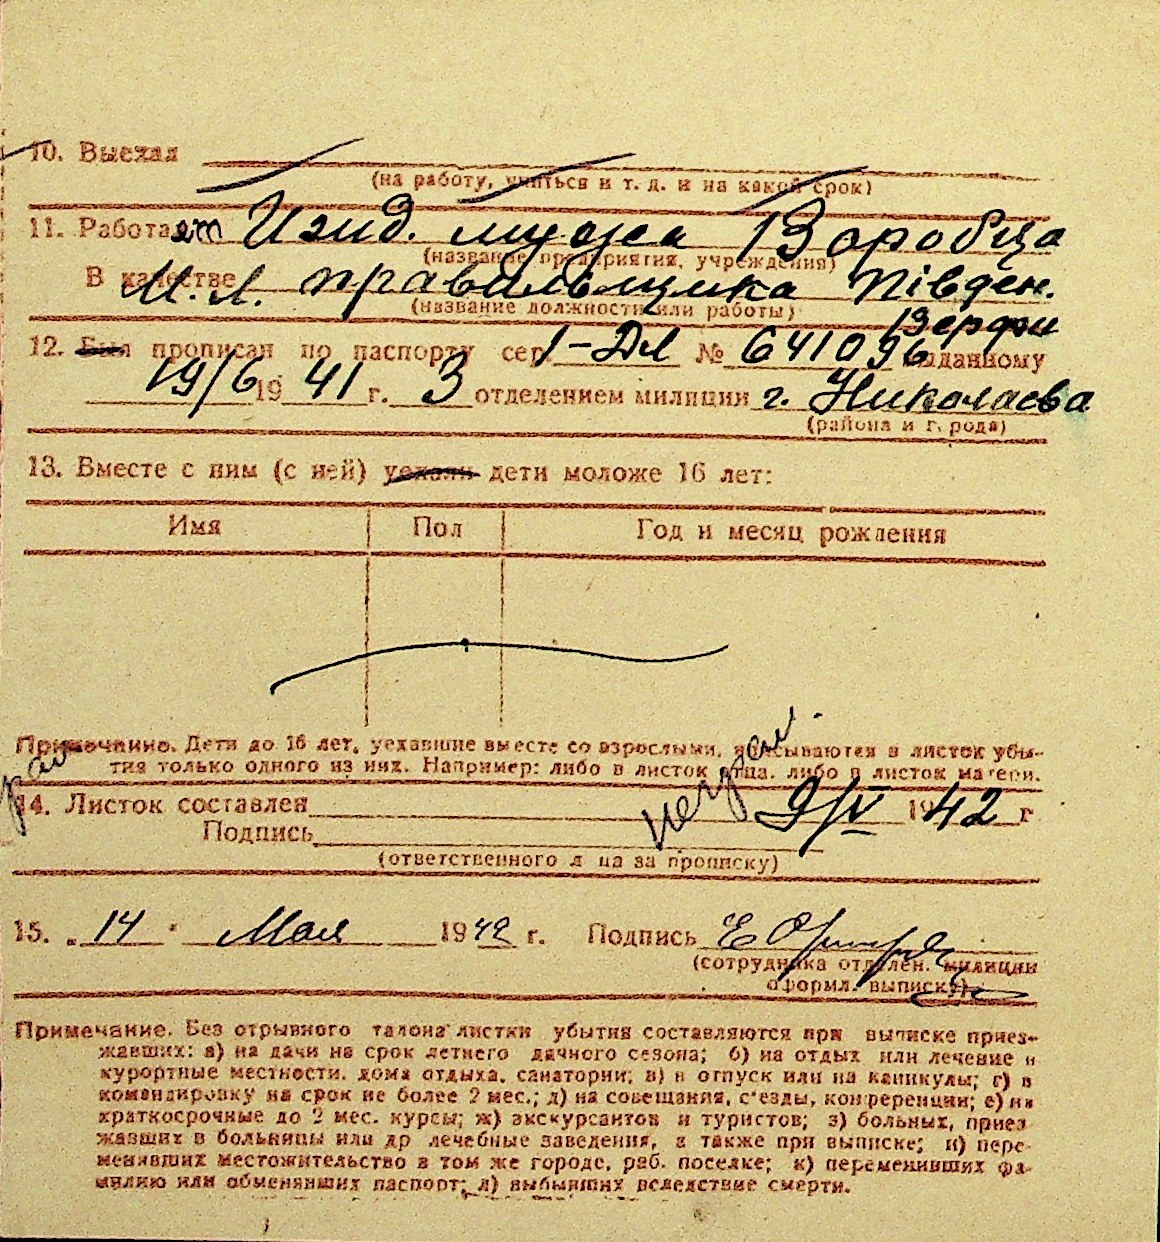 10. Выехал
(на работу, учиться и т. д. и на какой срок)
11. Работает Ижид. мужа Воробца
(название предприятия, учреждения)
В качестве М.Л. правильщика Південь.
(название должности или работы) Верфи
12. Был прописан по паспорту сер. 1-ДЛ № 641096 выданному
19/6 1941 г. 3 отделением милиции г. Николаева
(района и г. рода)
13. Вместе с ним (с ней) уехали дети моложе 16 лет:
Имя Пол Год и месяц рождения
Примечание. Дети до 16 лет, уехавшие вместе со взрослыми, вписываются в листок убы-
тия только одного из них. Например: либо в листок отца, либо в листок матери.
14. Листок составлен 9/V 1942 г
Подпись
(ответственного л ца за прописку)
15. „14" Мая 1942 г. Подпись
(сотрудника отделен. милиции
оформл. выписку)
Примечание. Без отрывного талона листки убытия составляются при выписке приез-
жавших: а) на дачи на срок летнего дачного сезона; б) на отдых или лечение в
курортные местности, дома отдыха, санатории; в) в отпуск или на каникулы; г) в
командировку на срок не более 2 мес.; д) на совещания, с'езды, конференции; е) на
краткосрочные до 2 мес. курсы; ж) экскурсантов и туристов; з) больных, приез
жавших в больницы или др лечебные заведения, а также при выписке; и) пере-
менивших местожительство в том же городе, раб. поселке; к) переменивших фа-
милию или обменявших паспорт; л) выбывших вследствие смерти.